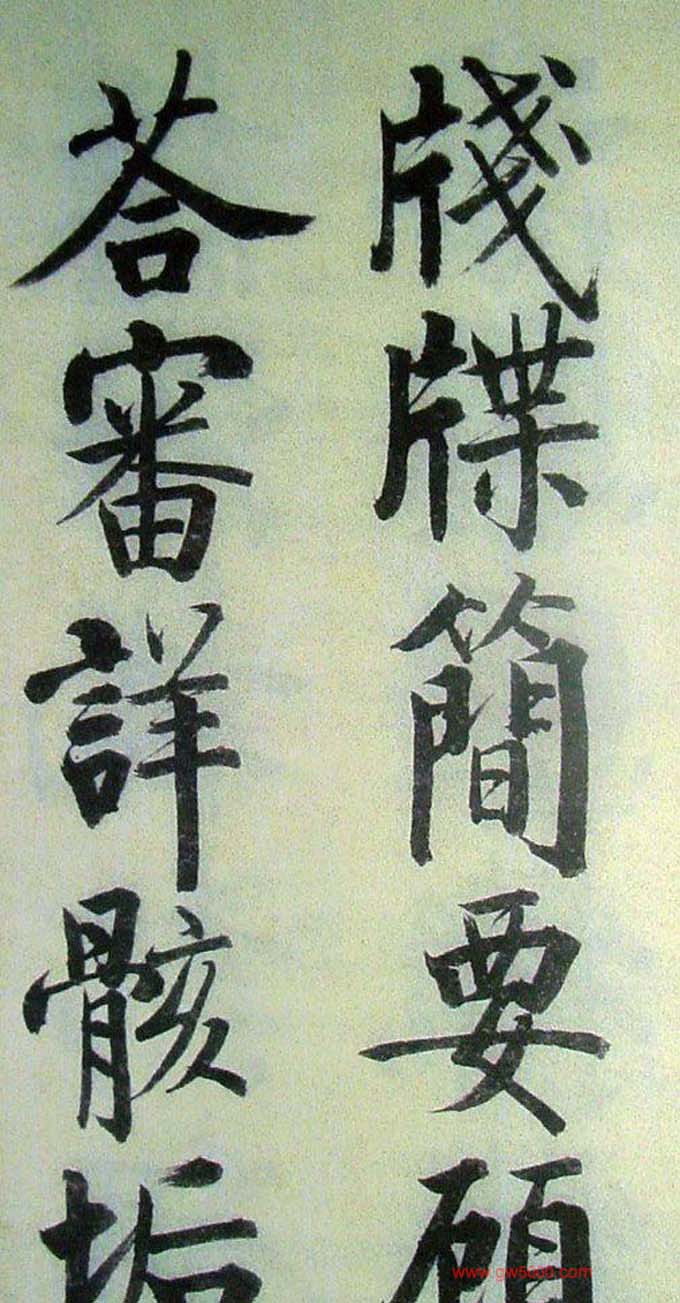 牋牒簡要顧
荅審詳骸垢
www.gw5000.com